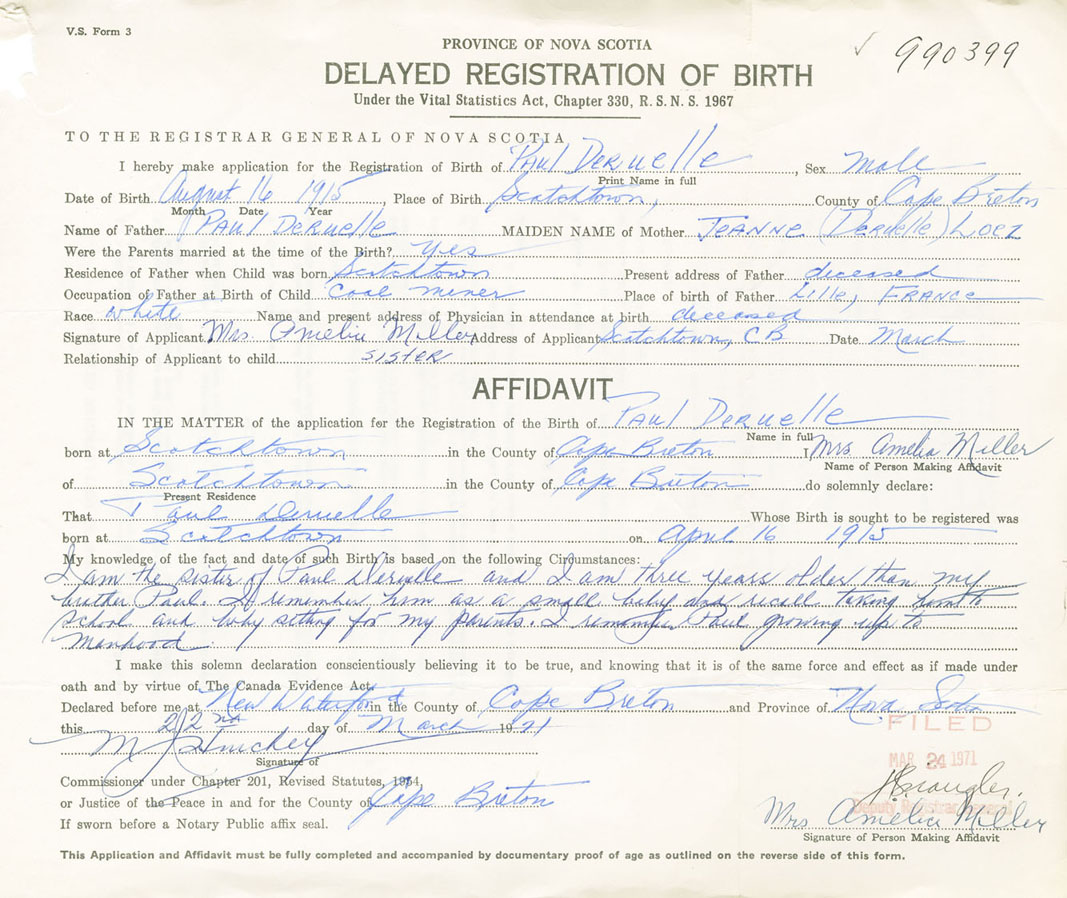 V.S. Form 3
990399
PROVINCE OF NOVA SCOTIA
DELAYED REGISTRATION OF BIRTH
Under the Vital Statistics Act, Chapter 330, R.S.N.S. 1967
TO THE REGISTRAR GENERAL OF NOVA SCOTIA
I hereby make application for the Registration of Birth of Paul Deruelle, Sex Male
Print Name in full
Date of Birth August 16 1915, Place of Birth Scotchtown, County of Cape Breton
Month Date Year
Name of Father Paul Deruelle MAIDEN NAME of Mother Jeanne (Deruelle)
Were the Parents married at the time of the Birth? yes
Residence of Father when Child was born Scotchtown Present address of Father deceased
Occupation of Father at Birth of Child Coal miner Place of birth of Father Lille, France
Race White Name and present address of Physician in attendance at birth deceased
Signature of Applicant Mrs Amelia Miller Address of Applicant Scotchtown, CB Date March
Relationship of Applicant to child SISTER
AFFIDAVIT
IN THE MATTER of the application for the Registration of the Birth of Paul Deruelle
Name in full
born at Scotchtown in the County of Cape Breton I Mrs Amelia Miller
Name of Person Making Affidavit
of Scotchtown in the County of Cape Breton do solemnly declare:
Present Residence
That Paul Deruelle Whose Birth is sought to be registered was
born at Scotchtown on April 16 1915
My knowledge of the fact and date of such Birth is based on the following Circumstances:
I am the sister of Paul Deruelle and I am three years older than my
brother Paul. I remember him as a small baby and recall taking him to
school and baby sitting for my parents. I remember Paul growing up to
manhood.
I make this solemn declaration conscientiously believing it to be true, and knowing that it is of the same force and effect as if made under
oath and by virtue of The Canada Evidence Act.
Declared before me at New Waterford in the County of Cape Breton and Province of Nova Scotia
this 22nd day of March 1971
FILED
MAR 24 1971
Deputy Registrar General
M J Hinchey
Signature of
Commissioner under Chapter 201, Revised Statutes, 1954,
or Justice of the Peace in and for the County of Cape Breton
If sworn before a Notary Public affix seal.
Mrs Amelia Miller
Signature of Person Making Affidavit
This Application and Affidavit must be fully completed and accompanied by documentary proof of age as outlined on the reverse side of this form.